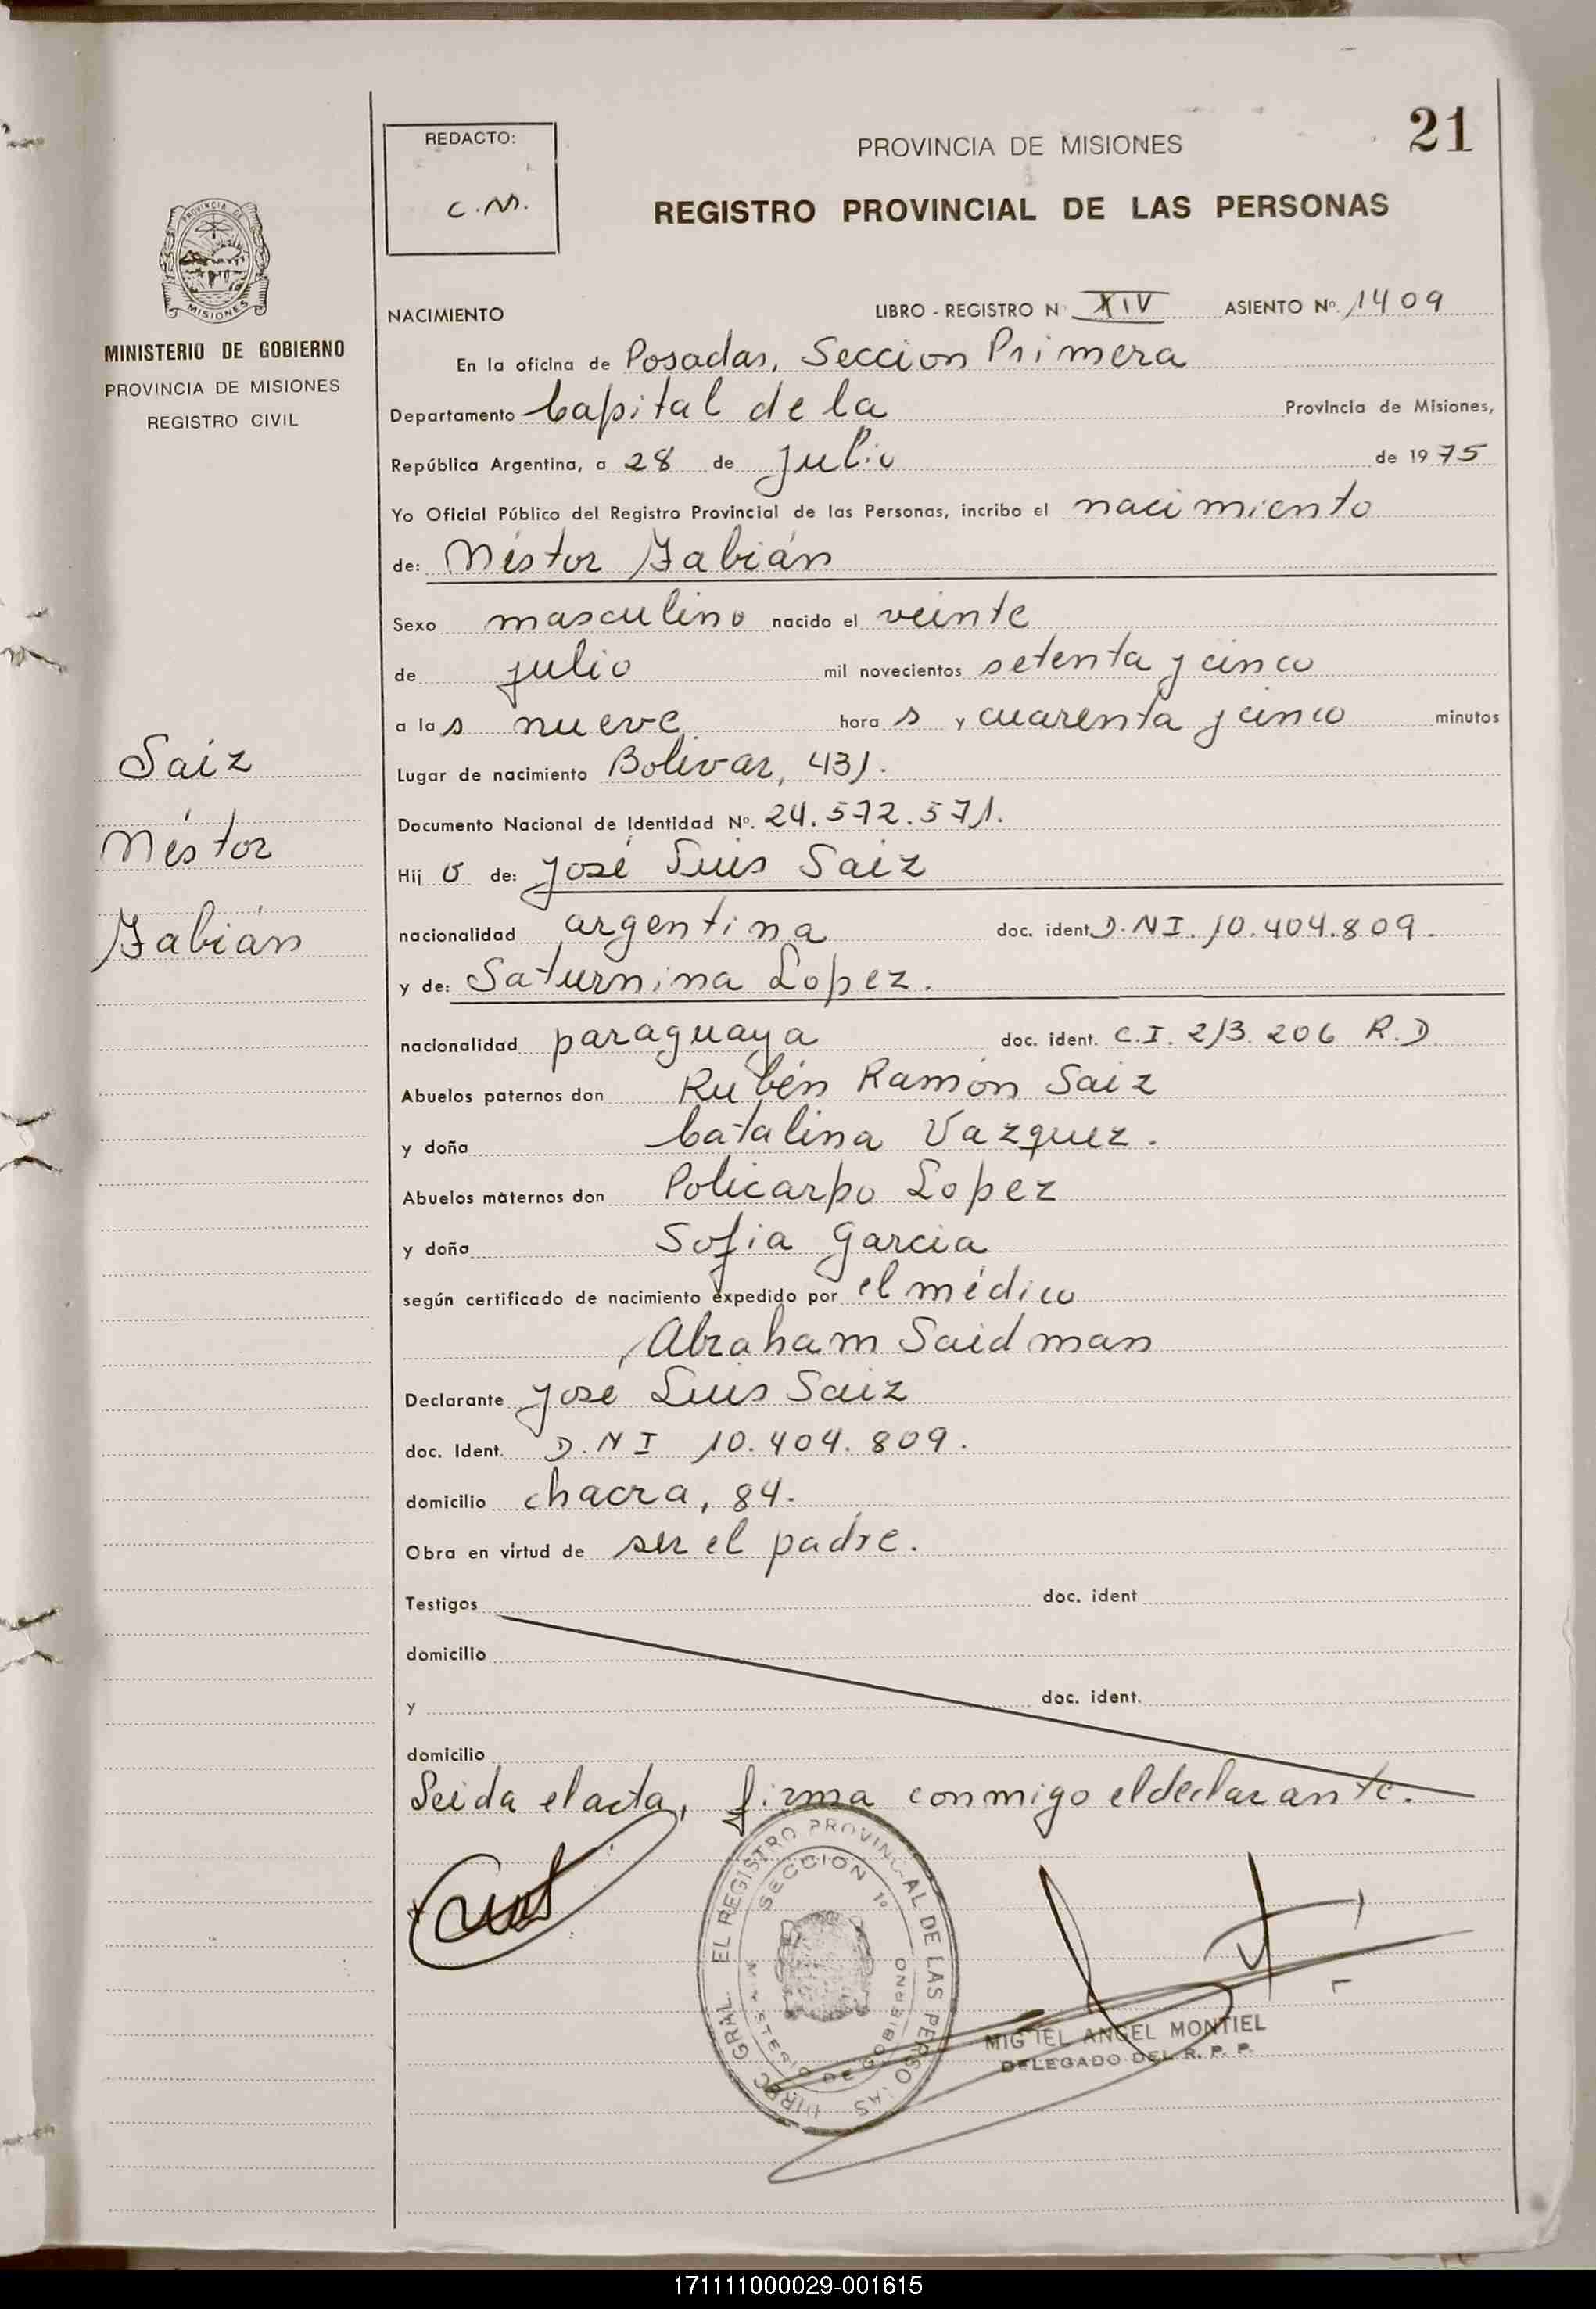 21
REDACTO:
C.M.
PROVINCIA DE MISIONES
REGISTRO PROVINCIAL DE LAS PERSONAS
PROVINCIA DE
MISIONES
MINISTERIO DE GOBIERNO
PROVINCIA DE MISIONES
REGISTRO CIVIL
NACIMIENTO LIBRO - REGISTRO Nº XIV ASIENTO Nº. 1409
En la oficina de Posadas, Seccion Primera
Departamento Capital de la Provincia de Misiones,
República Argentina, a 28 de Julio de 1975
Yo Oficial Público del Registro Provincial de las Personas, incribo el nacimiento
de: Néstor Fabián
Sexo masculino nacido el veinte
de julio mil novecientos setenta y cinco
a las nueve hora s y cuarenta y cinco minutos
Saiz
Néstor
Fabián
Lugar de nacimiento Bolivar, 431.
Documento Nacional de Identidad Nº. 24.572.571.
Hij o de: José Luis Saiz
nacionalidad argentina doc. ident D.NI. 10.404.809.
y de: Saturnina Lopez.
nacionalidad paraguaya doc. ident. C.I. 213.206 R.D
Abuelos paternos don Rubén Ramón Saiz
y doña Catalina Vazquez.
Abuelos maternos don Policarpo Lopez
y doña Sofia Garcia
según certificado de nacimiento expedido por el médico
Abraham Saidman
Declarante José Luis Saiz
doc. Ident. D.NI 10.404.809.
domicilio chacra, 84.
Obra en virtud de ser el padre.
Testigos doc. ident
domicilio
y doc. ident.
domicilio
Leida el acta, firma conmigo el declarante.
DIREC GRAL. EL REGISTRO PROVINCIAL DE LAS PERSONAS
SECCION 1º
MINISTERIO DE GOBIERNO
MIGUEL ANGEL MONTIEL
DELEGADO DEL R. P. P.
171111000029-001615